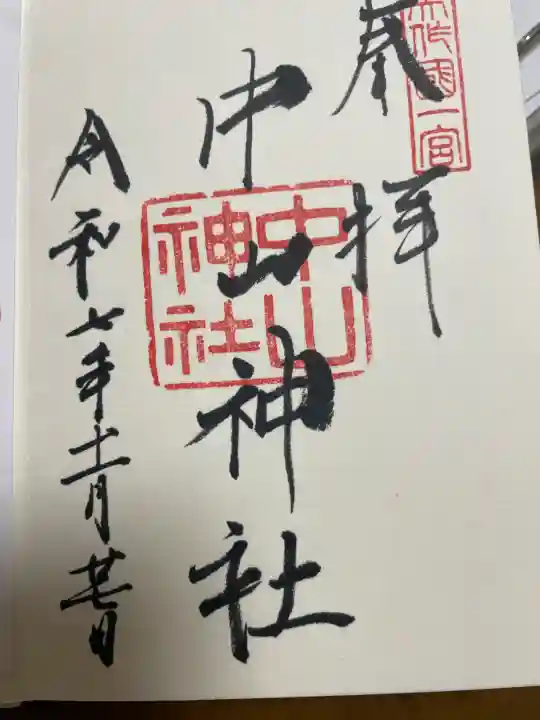 奉拝
美作國一宮
中山神社
中山
神社
令和七年十二月廿七日